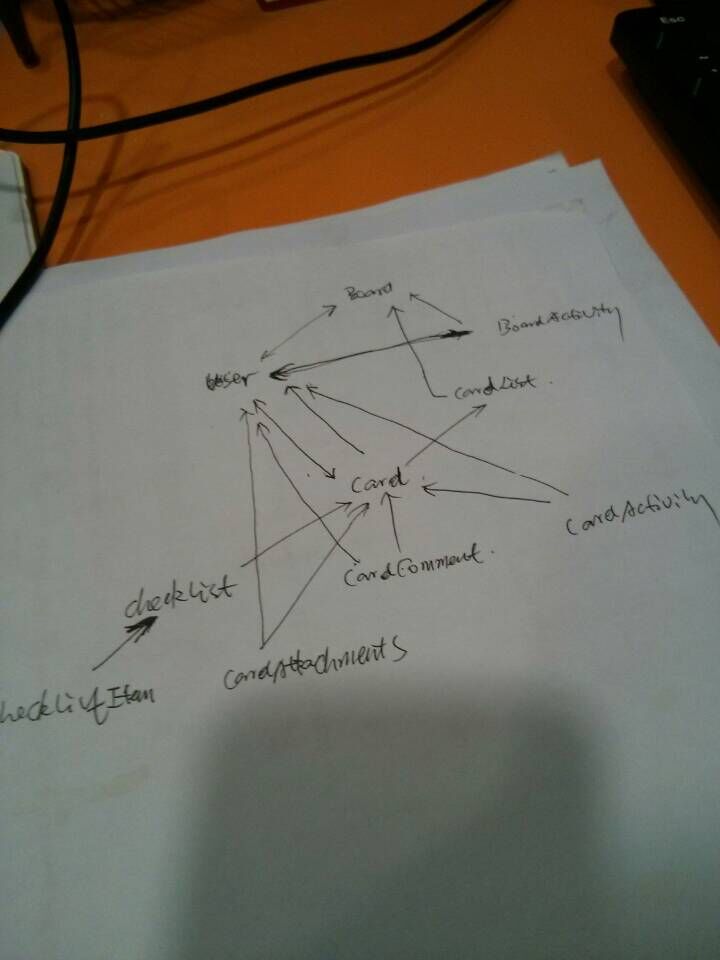 Esc
Board
BoardActivity
User
CardList.
Card.
CardActivity
CardComment.
checklist
CardAttachments
checklistItem